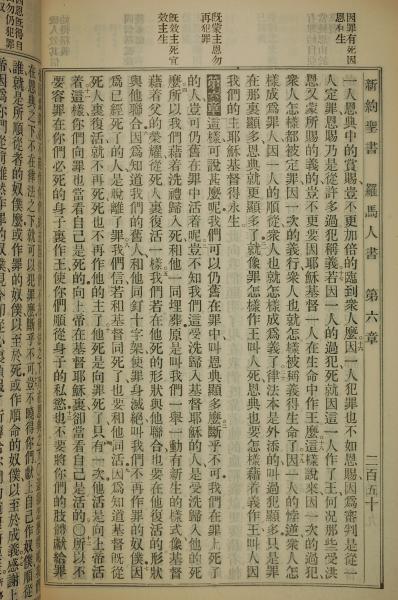 新約聖書 羅馬人書 第六章 二百五十
因罪有死因
恩永生
一人恩典中的賞賜豈不更加倍的臨到衆人麽一人犯罪也不如恩賜因爲審判是從一
人定罪恩賜乃是從許多過犯稱義若因一人的過犯死就因這一人作了王何况那些受洪
恩又蒙所賜的義的豈不更要因耶穌基督一人在生命中作王麽這樣說來因一次的過犯
衆人怎樣都被定罪因一次的義行衆人也就怎樣被稱義得生命了因一人的悖逆衆人怎
樣成爲罪人因一人的順從衆人也就怎樣成爲義了律法本是外添的叫過犯顯多只是罪
在那裏顯多恩典就更顯多了就像罪怎樣作王叫人死恩典也要怎樣藉着義作王叫人因
我們的主耶穌基督得永生
既蒙主恩勿
再犯罪
第六章這樣可說甚麽呢我們可以仍舊在罪中叫恩典顯多麽斷乎不可我們在罪上死了
的人豈可仍舊在罪中活着呢豈不知我們這受洗歸入基督耶穌的人是受洗歸入他的死
麽所以我們藉着洗禮歸入死和他一同埋葬原是叫我們一舉一動有新生的樣式像基督
既效主死宜
效主生
藉着父的榮耀從死人裏復活一樣我們若在他死的形狀與他聯合也要在他復活的形狀
與他聯合因爲知道我們的舊人和他同釘十字架使罪身滅絕叫我們不再作罪的奴僕因
爲已經死了的人是脫離了罪我們信若和基督同死了也要和他同活因爲知道基督既從
死人裏復活就不再死死也不再作他的主了他死是向罪死了只有一次他活是向上帝活
着這樣你們向罪也當看自己是死的向上帝在基督耶穌裏却當看自己是活的〇所以不
要容罪在你們必死的身子裏作王使你們順從身子的私慾也不要將你們的肢體獻給罪
因恩既得自
勿仍犯罪
在恩典之下不在律法之下就可以犯罪麽斷乎不可豈不曉得你們獻上自己作奴僕順從
誰就是所順從者的奴僕麽或作罪的奴僕以至於死或作順命的奴僕以至於成義感謝